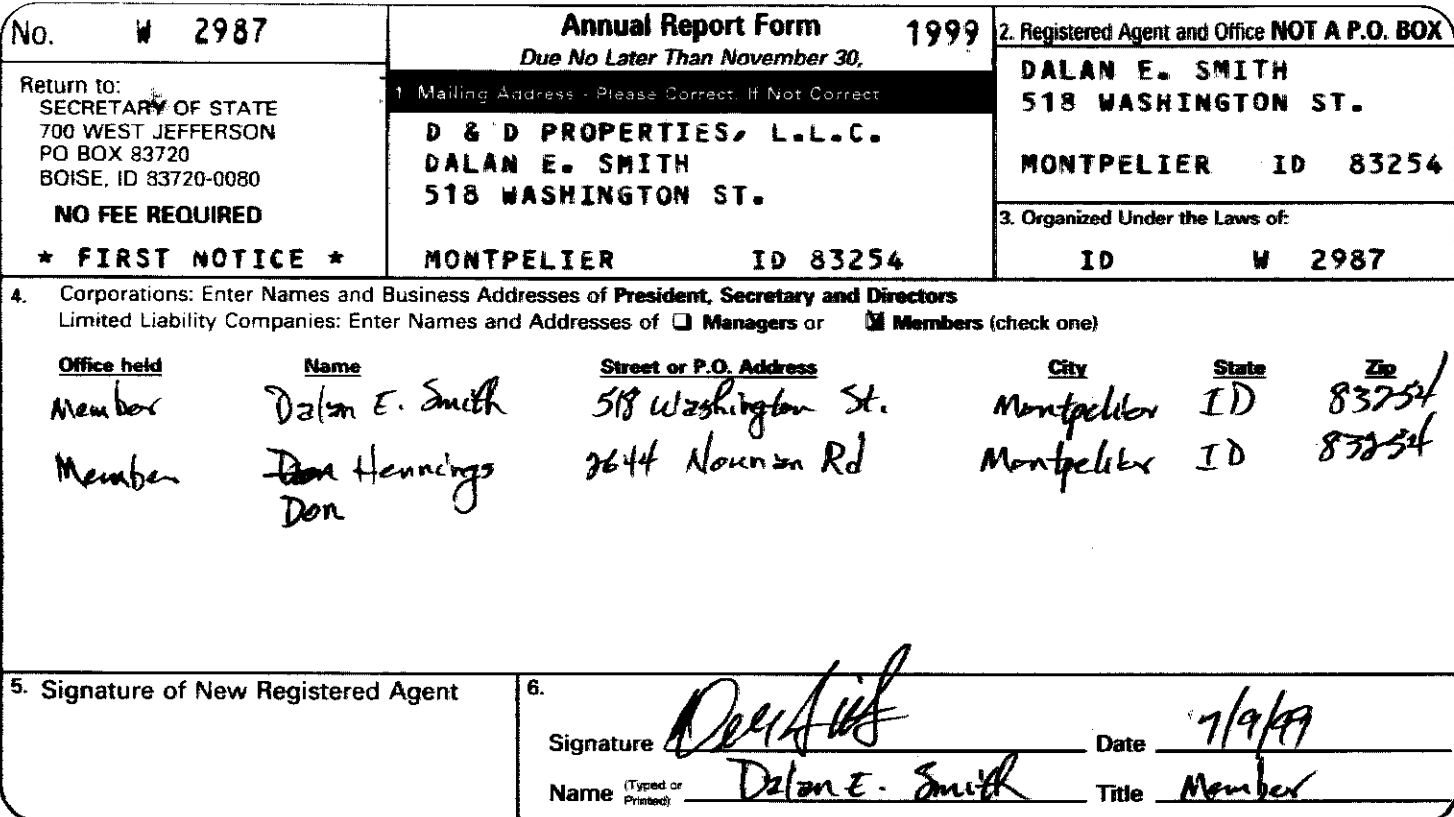 No. W 2987
Return to:
SECRETARY OF STATE
700 WEST JEFFERSON
PO BOX 83720
BOISE, ID 83720-0080
NO FEE REQUIRED
* FIRST NOTICE *
Annual Report Form 1999
Due No Later Than November 30,
1 Mailing Address - Please Correct, If Not Correct
D & D PROPERTIES, L.L.C.
DALAN E. SMITH
518 WASHINGTON ST.
MONTPELIER ID 83254
2. Registered Agent and Office NOT A P.O. BOX
DALAN E. SMITH
518 WASHINGTON ST.
MONTPELIER ID 83254
3. Organized Under the Laws of:
ID W 2987
4. Corporations: Enter Names and Business Addresses of President, Secretary and Directors
Limited Liability Companies: Enter Names and Addresses of Managers or Members (check one)
Office held Name Street or P.O. Address City State Zip
Member Dalan E. Smith 518 Washington St. Montpelier ID 83254
Member Don Hennings 2644 Nounan Rd Montpelier ID 83254
Don
5. Signature of New Registered Agent
6.
Signature Date 7/9/99
Name (Typed or Printed) Dalan E. Smith Title Member